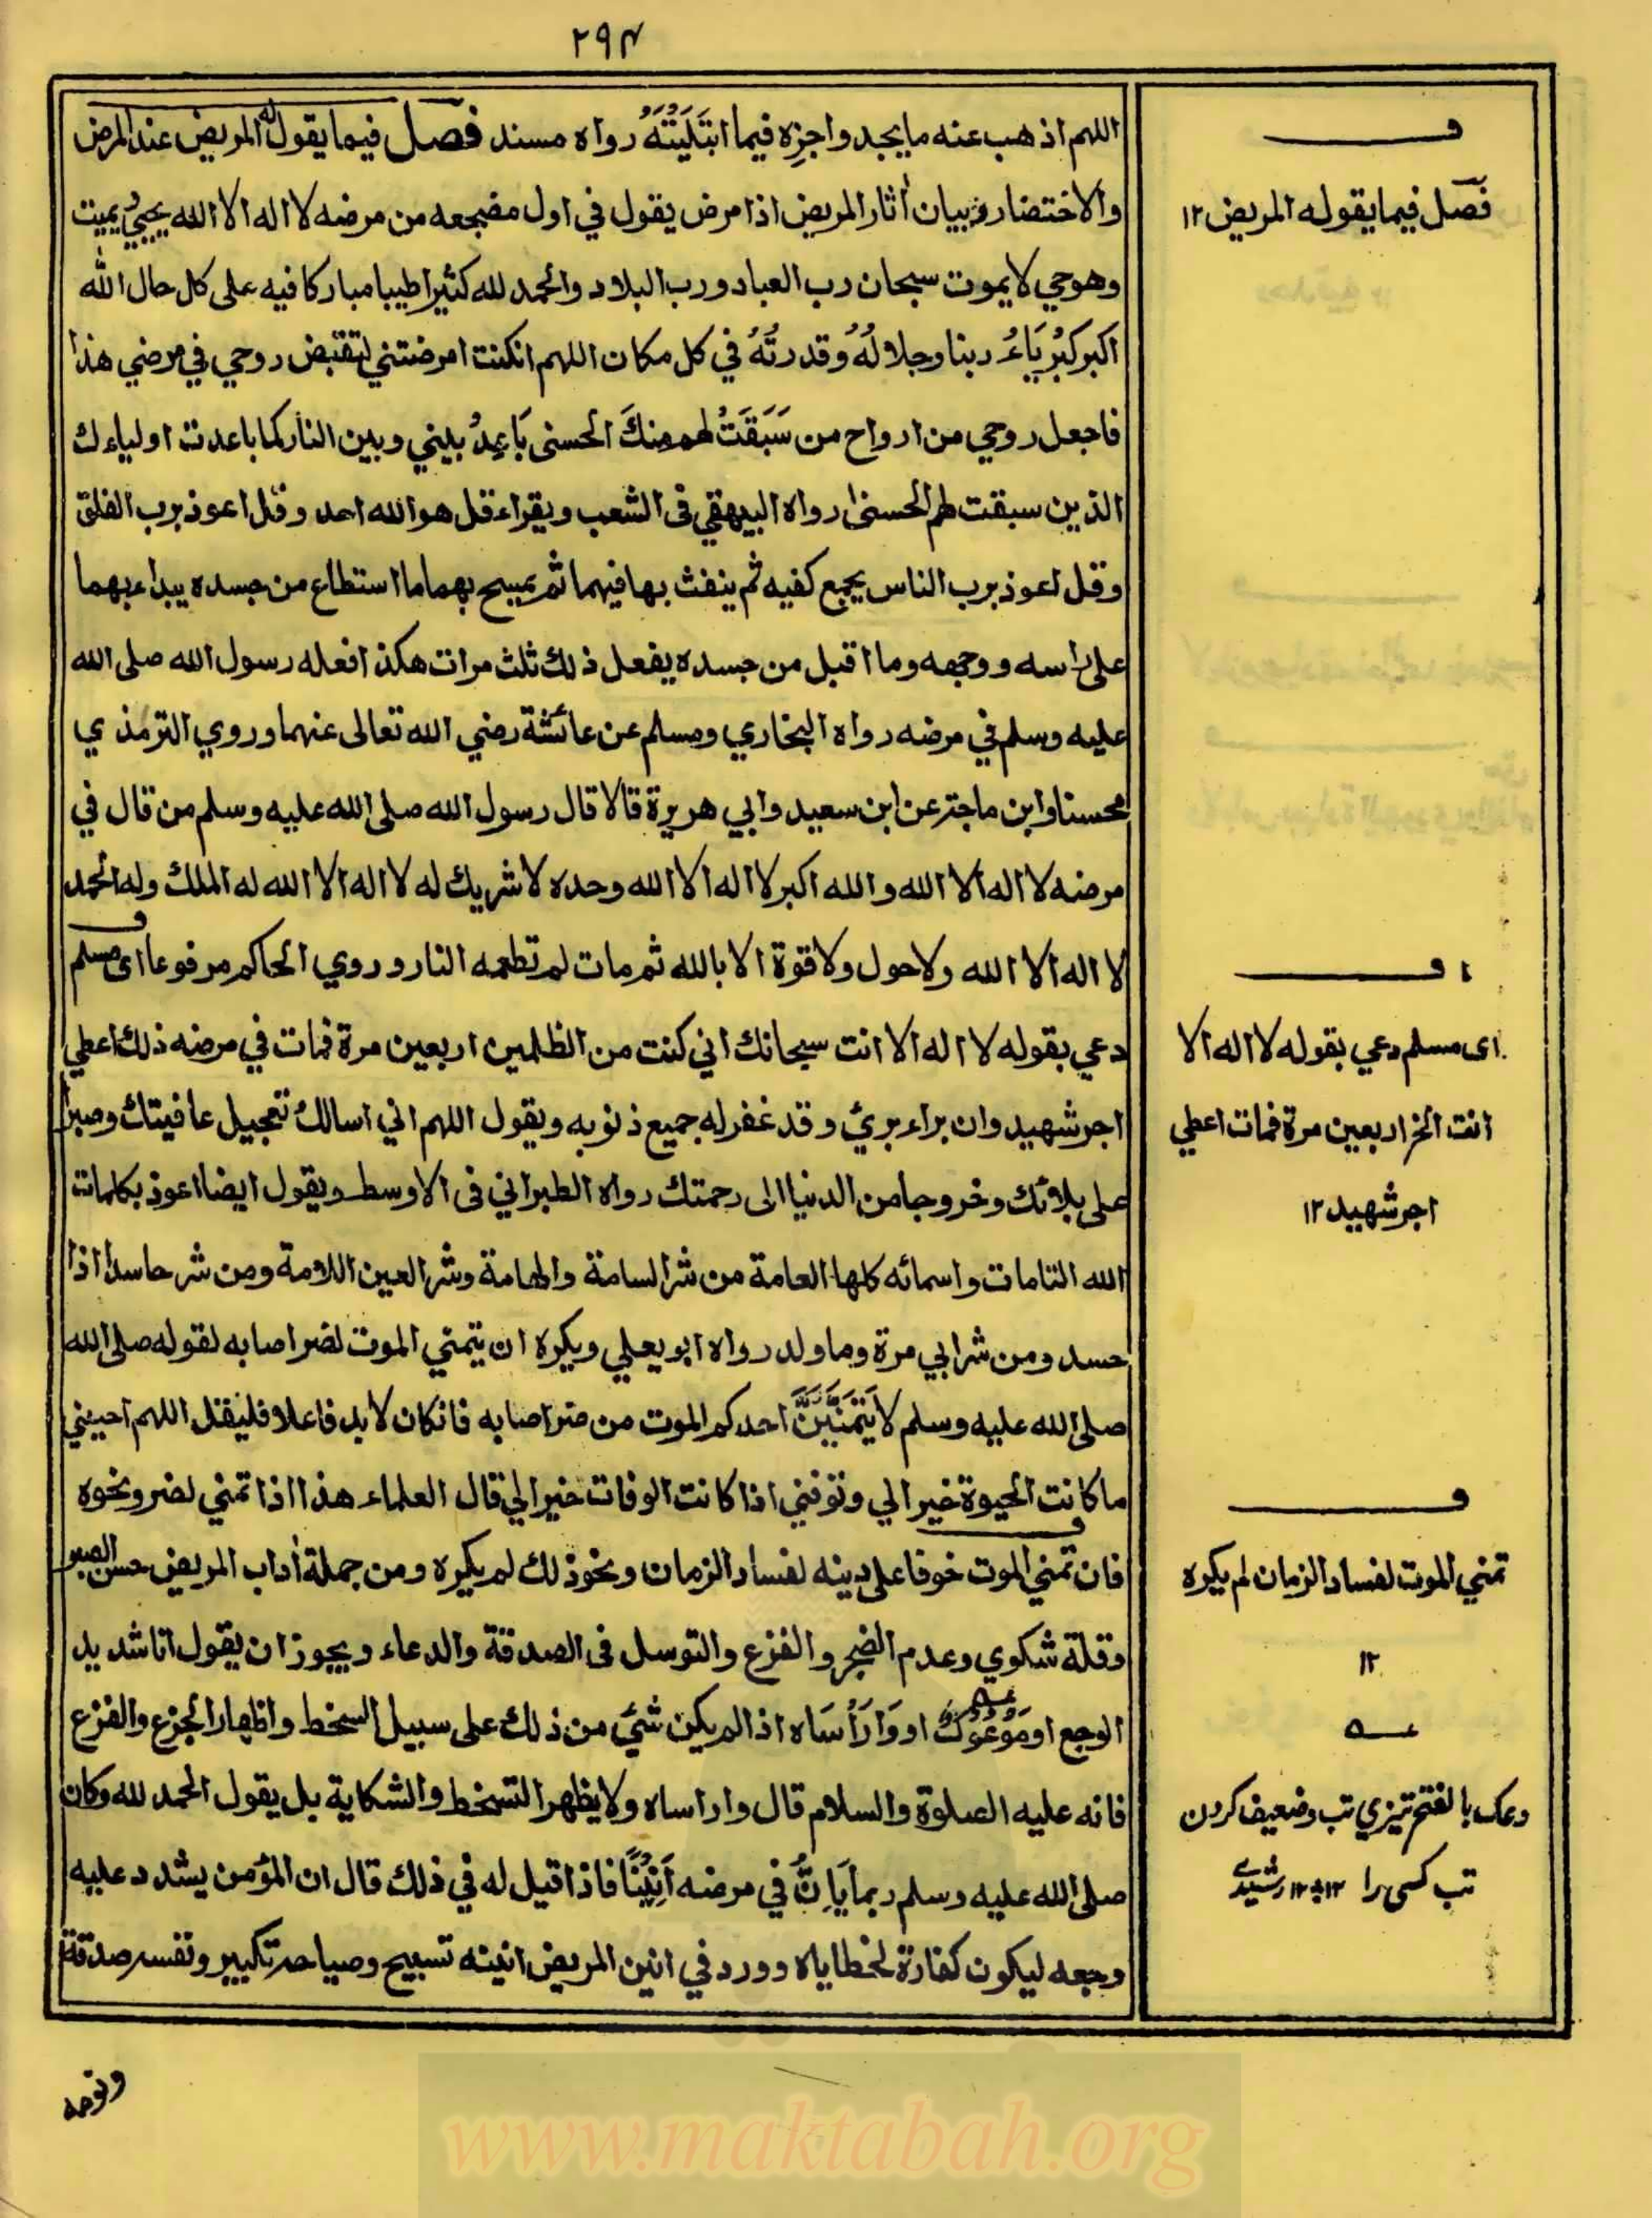 ٢٩٤
اللهم اذهب عنه مايجد واجزه فيما ابتَلَيْتَهُ رواه مسند فصل فيما يقوله المريض عند المرض
والاختضار وبيان أثار المريض اذا مرض يقول في اول مضجعه من مرضه لا اله الا الله يحيي ويميت
وهو حي لا يموت سبحان رب العباد ورب البلاد والحمد لله كثيرا طيبا مباركا فيه على كل حال الله
اكبر كبْرِيَاءُ ربنا وجلالُهُ وقدرتُهُ في كل مكان اللهم انكنت امرضتني لتقبض روحي في مرضي هذا
فاجعل روحي من ارواح من سَبَقَتْ لهم منكَ الحسنى بَاعِدْ بيني وبين النار كما باعدت اولياءك
الذين سبقت لهم الحسنى رواه البيهقي فى الشعب ويقراء قل هو الله احد وقل اعوذ برب الفلق
وقل اعوذ برب الناس يجمع كفيه ثم ينفث بها فيهما ثم يمسح بهما ما استطاع من جسده يبداء بهما
على راسه ووجهه وما اقبل من جسده يفعل ذلك ثلث مرات هكذا فعله رسول الله صلى الله
عليه وسلم في مرضه رواه البخاري ومسلم عن عائشة رضي الله تعالى عنهما وروي الترمذي
محسنا وابن ماجة عن ابن سعيد وابي هريرة قالا قال رسول الله صلى الله عليه وسلم من قال في
مرضه لا اله الا الله والله اكبر لا اله الا الله وحده لا شريك له لا اله الا الله له الملك وله الحمد
لا اله الا الله ولا حول ولا قوة الا بالله ثم مات لم تطعمه النار وروي الحاكم مرفوعا اى مسلم
دعي بقوله لا اله الا انت سبحانك اني كنت من الظلمين اربعين مرة فمات في مرضه ذلك اعطي
اجر شهيد وان براء بريَ وقد غفر له جميع ذنوبه ويقول اللهم اني اسالك تعجيل عافيتك وصبرا
على بلائك وخروجا من الدنيا الى رحمتك رواه الطبراني فى الاوسط ويقول ايضا اعوذ بكلمات
الله التامات واسمائه كلها العامة من شر السامة والهامة وشر العين اللامة ومن شر حاسد اذا
حسد ومن شر ابي مرة وما ولد رواه ابو يعلي ويكره ان يتمني الموت لضر اصابه لقوله صلى الله
صلى الله عليه وسلم لا يَتَمَنَّيَنَّ احدكم الموت من ضر اصابه فانكان لا بد فاعلا فليقل اللهم احييني
ما كانت الحيوة خيرا لي وتوفني اذا كانت الوفات خيرا لي قال العلماء هذا اذا تمني لضر ونحوه
فان تمني الموت خوفا على دينه لفساد الزمان ونحو ذلك لم يكره ومن جملة أداب المريض حسن الصبر
وقلة شكوي وعدم الضجر والفزع والتوسل فى الصدقة والدعاء ويجوز ان يقول انا شديد
الوجع او مَوْعُوْكٌ او وَارَأْسَاه اذا لم يكن شيَ من ذلك على سبيل السخط واظهار الجزع والفزع
فانه عليه الصلوة والسلام قال واراساه ولا يظهر التسخط والشكاية بل يقول الحمد لله وكان
صلى الله عليه وسلم ربما يَاِنُّ في مرضه اَنِيْنًا فاذا قيل له في ذلك قال ان المؤمن يشدد عليه
وجعه ليكون كفارة لخطاياه وورد في انين المريض انينه تسبيح وصياحه تكبير ونفسه صدقة
ونومه
ف
فصل فيما يقوله المريض ١٢
ف
اى مسلم دعي بقوله لا اله الا
انت الخ اربعين مرة فمات اعطي
اجر شهيد ١٢
ف
تمني الموت لفساد الزمان لم يكره
١٢
عــه
وعك بالفتح تيزي تب وضعيف كردن
تب كسى را ١٢ رشيدي
www.maktabah.org